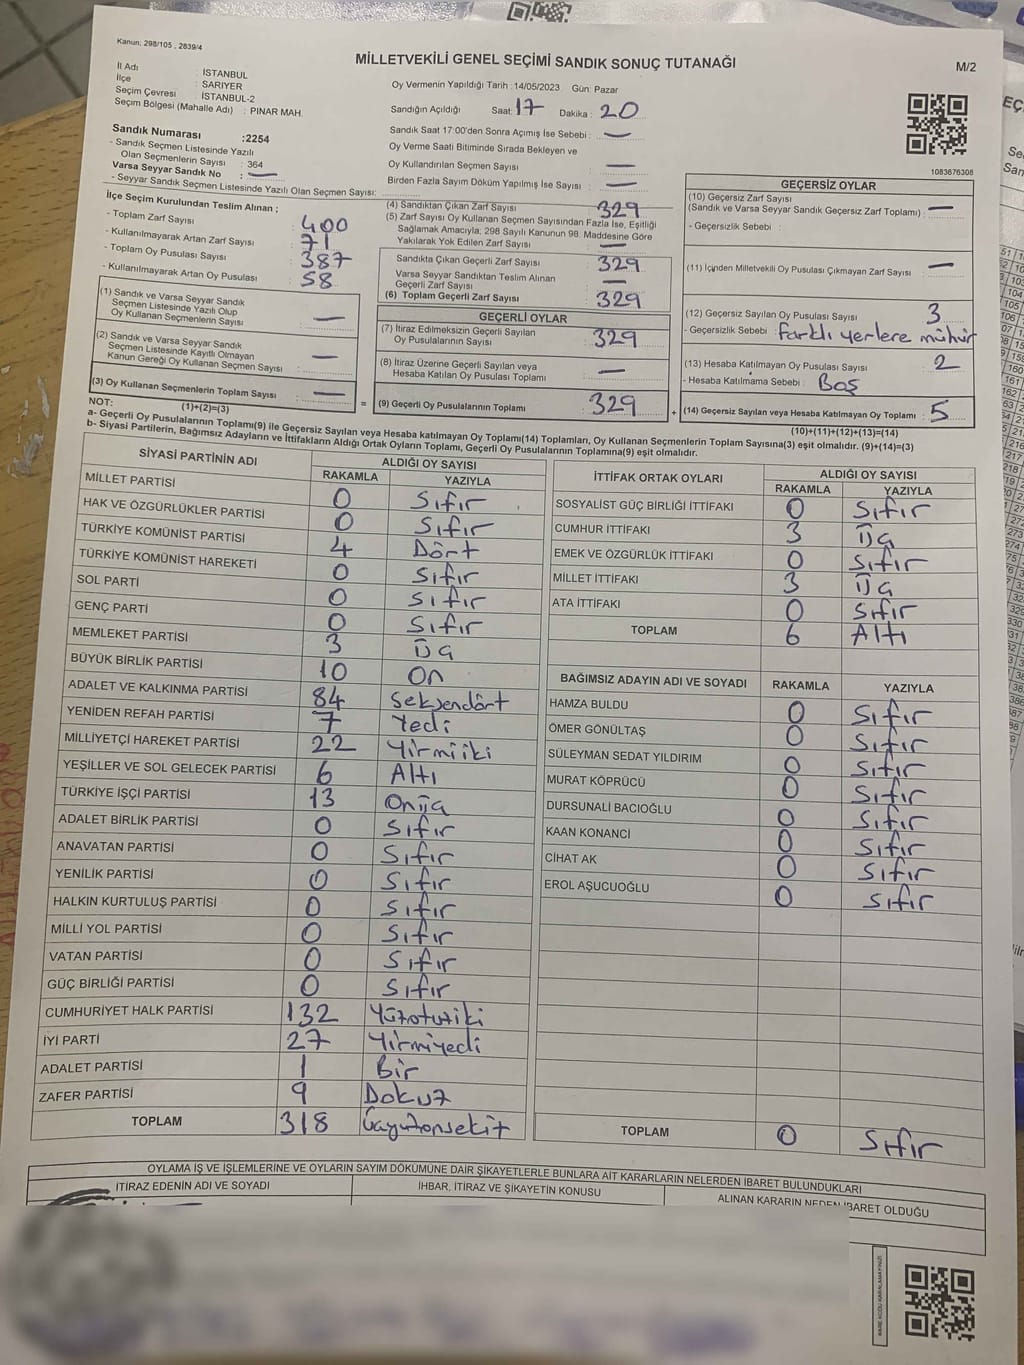 Kanun: 298/105 , 2839/4
MİLLETVEKİLİ GENEL SEÇİMİ SANDIK SONUÇ TUTANAĞI
M/2
İl Adı : İSTANBUL
İlçe : SARIYER
Seçim Çevresi : İSTANBUL-2
Seçim Bölgesi (Mahalle Adı) : PINAR MAH.
Sandık Numarası :2254
- Sandık Seçmen Listesinde Yazılı
Olan Seçmenlerin Sayısı : 364
Varsa Seyyar Sandık No : —
- Seyyar Sandık Seçmen Listesinde Yazılı Olan Seçmen Sayısı:
Oy Vermenin Yapıldığı Tarih :14/05/2023 Gün: Pazar
Sandığın Açıldığı Saat: 17 Dakika : 20
Sandık Saat 17:00'den Sonra Açımış İse Sebebi : —
Oy Verme Saati Bitiminde Sırada Bekleyen ve
Oy Kullandırılan Seçmen Sayısı : —
Birden Fazla Sayım Döküm Yapılmış İse Sayısı : —
1083676308
İlçe Seçim Kurulundan Teslim Alınan ;
- Toplam Zarf Sayısı : 400
- Kullanılmayarak Artan Zarf Sayısı : 71
- Toplam Oy Pusulası Sayısı : 387
- Kullanılmayarak Artan Oy Pusulası : 58
(1) Sandık ve Varsa Seyyar Sandık
Seçmen Listesinde Yazılı Olup
Oy Kullanan Seçmenlerin Sayısı : —
(2) Sandık ve Varsa Seyyar Sandık
Seçmen Listesinde Kayıtlı Olmayan
Kanun Gereği Oy Kullanan Seçmen Sayısı : —
(3) Oy Kullanan Seçmenlerin Toplam Sayısı : —
(1)+(2)=(3)
(4) Sandıktan Çıkan Zarf Sayısı : 329
(5) Zarf Sayısı Oy Kullanan Seçmen Sayısından Fazla İse, Eşitliği
Sağlamak Amacıyla, 298 Sayılı Kanunun 98. Maddesine Göre
Yakılarak Yok Edilen Zarf Sayısı : —
Sandıkta Çıkan Geçerli Zarf Sayısı : 329
Varsa Seyyar Sandıktan Teslim Alınan
Geçerli Zarf Sayısı : —
(6) Toplam Geçerli Zarf Sayısı : 329
GEÇERLİ OYLAR
(7) İtiraz Edilmeksizin Geçerli Sayılan
Oy Pusulalarının Sayısı : 329
(8) İtiraz Üzerine Geçerli Sayılan veya
Hesaba Katılan Oy Pusulası Toplamı : —
= (9) Geçerli Oy Pusulalarının Toplamı : 329 +
GEÇERSİZ OYLAR
(10) Geçersiz Zarf Sayısı
(Sandık ve Varsa Seyyar Sandık Geçersiz Zarf Toplamı) : —
- Geçersizlik Sebebi :
(11) İçinden Milletvekili Oy Pusulası Çıkmayan Zarf Sayısı : —
(12) Geçersiz Sayılan Oy Pusulası Sayısı : 3
- Geçersizlik Sebebi : farklı yerlere mühür
(13) Hesaba Katılmayan Oy Pusulası Sayısı : 2
- Hesaba Katılmama Sebebi : Boş
(14) Geçersiz Sayılan veya Hesaba Katılmayan Oy Toplamı : 5
(10)+(11)+(12)+(13)=(14)
NOT:
a- Geçerli Oy Pusulalarının Toplamı(9) ile Geçersiz Sayılan veya Hesaba katılmayan Oy Toplamı(14) Toplamları, Oy Kullanan Seçmenlerin Toplam Sayısına(3) eşit olmalıdır. (9)+(14)=(3)
b- Siyasi Partilerin, Bağımsız Adayların ve İttifakların Aldığı Ortak Oyların Toplamı, Geçerli Oy Pusulalarının Toplamına(9) eşit olmalıdır.
SİYASİ PARTİNİN ADI ALDIĞI OY SAYISI
RAKAMLA YAZIYLA
MİLLET PARTİSİ 0 Sıfır
HAK VE ÖZGÜRLÜKLER PARTİSİ 0 Sıfır
TÜRKİYE KOMÜNİST PARTİSİ 4 Dört
TÜRKİYE KOMÜNİST HAREKETİ 0 Sıfır
SOL PARTİ 0 Sıfır
GENÇ PARTİ 0 Sıfır
MEMLEKET PARTİSİ 3 Üç
BÜYÜK BİRLİK PARTİSİ 10 On
ADALET VE KALKINMA PARTİSİ 84 Seksendört
YENİDEN REFAH PARTİSİ 7 Yedi
MİLLİYETÇİ HAREKET PARTİSİ 22 Yirmiiki
YEŞİLLER VE SOL GELECEK PARTİSİ 6 Altı
TÜRKİYE İŞÇİ PARTİSİ 13 Onüç
ADALET BİRLİK PARTİSİ 0 Sıfır
ANAVATAN PARTİSİ 0 Sıfır
YENİLİK PARTİSİ 0 Sıfır
HALKIN KURTULUŞ PARTİSİ 0 Sıfır
MİLLİ YOL PARTİSİ 0 Sıfır
VATAN PARTİSİ 0 Sıfır
GÜÇ BİRLİĞİ PARTİSİ 0 Sıfır
CUMHURİYET HALK PARTİSİ 132 Yüzotuziki
İYİ PARTİ 27 Yirmiyedi
ADALET PARTİSİ 1 Bir
ZAFER PARTİSİ 9 Dokuz
TOPLAM 318 Üçyüzonsekiz
İTTİFAK ORTAK OYLARI ALDIĞI OY SAYISI
RAKAMLA YAZIYLA
SOSYALİST GÜÇ BİRLİĞİ İTTİFAKI 0 Sıfır
CUMHUR İTTİFAKI 3 Üç
EMEK VE ÖZGÜRLÜK İTTİFAKI 0 Sıfır
MİLLET İTTİFAKI 3 Üç
ATA İTTİFAKI 0 Sıfır
TOPLAM 6 Altı
BAĞIMSIZ ADAYIN ADI VE SOYADI RAKAMLA YAZIYLA
HAMZA BULDU 0 Sıfır
ÖMER GÖNÜLTAŞ 0 Sıfır
SÜLEYMAN SEDAT YILDIRIM 0 Sıfır
MURAT KÖPRÜCÜ 0 Sıfır
DURSUNALİ BACIOĞLU 0 Sıfır
KAAN KONANCİ 0 Sıfır
CİHAT AK 0 Sıfır
EROL AŞUCUOĞLU 0 Sıfır
TOPLAM 0 Sıfır
OYLAMA İŞ VE İŞLEMLERİNE VE OYLARIN SAYIM DÖKÜMÜNE DAİR ŞİKAYETLERLE BUNLARA AİT KARARLARIN NELERDEN İBARET BULUNDUKLARI
İTİRAZ EDENİN ADI VE SOYADI İHBAR, İTİRAZ VE ŞİKAYETİN KONUSU ALINAN KARARIN NEDEN İBARET OLDUĞU
KARE KODU KARALAMAYINIZ!